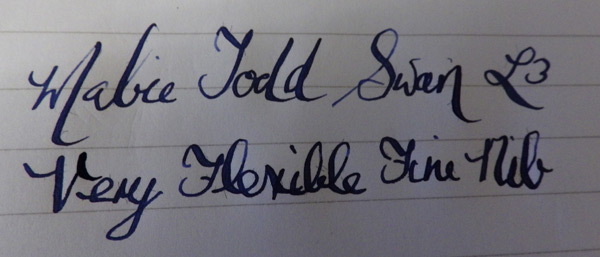 Mabie Todd Swan L3
Very Flexible Fine Nib